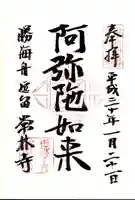 奉拝 平成三十年一月二十一日
阿弥陀如来
勝海舟逗留 常林寺